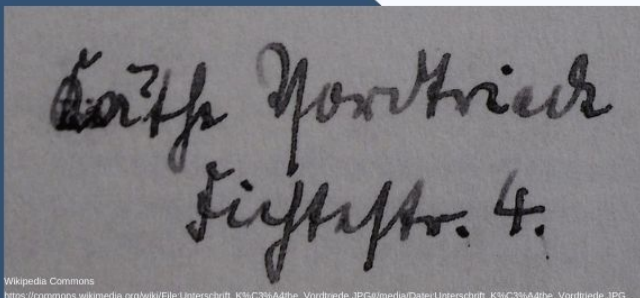 Käthe Vordtriede
Fichtestr. 4.
Wikipedia Commons
https://commons.wikimedia.org/wiki/File:Unterschrift_K%C3%A4the_Vordtriede.JPG#/media/Datei:Unterschrift_K%C3%A4the_Vordtriede.JPG